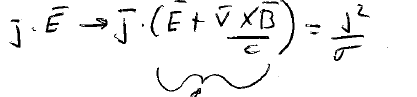 j̄ · Ē → j̄ · (Ē + v̄ × B̄ / c) = j² / σ